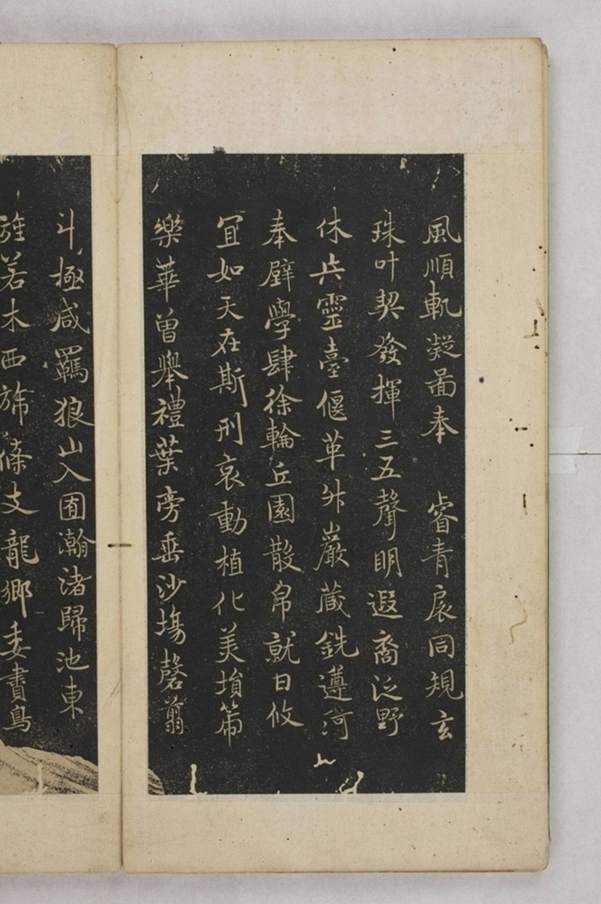 風順軌凝圖奉 睿青扆同規玄
珠叶契發揮三五聲明遐裔泛野
休兵靈臺偃革升巖蔵銑遵河
奉璧學肆徐輪丘園散帛就日攸
宜如天在斯刑哀動植化美
樂華曾舉禮葉旁垂沙塲罄翦
斗極咸羈狼山入囿瀚渚歸池東
旌若木西旆條支龍鄉委賮鳥